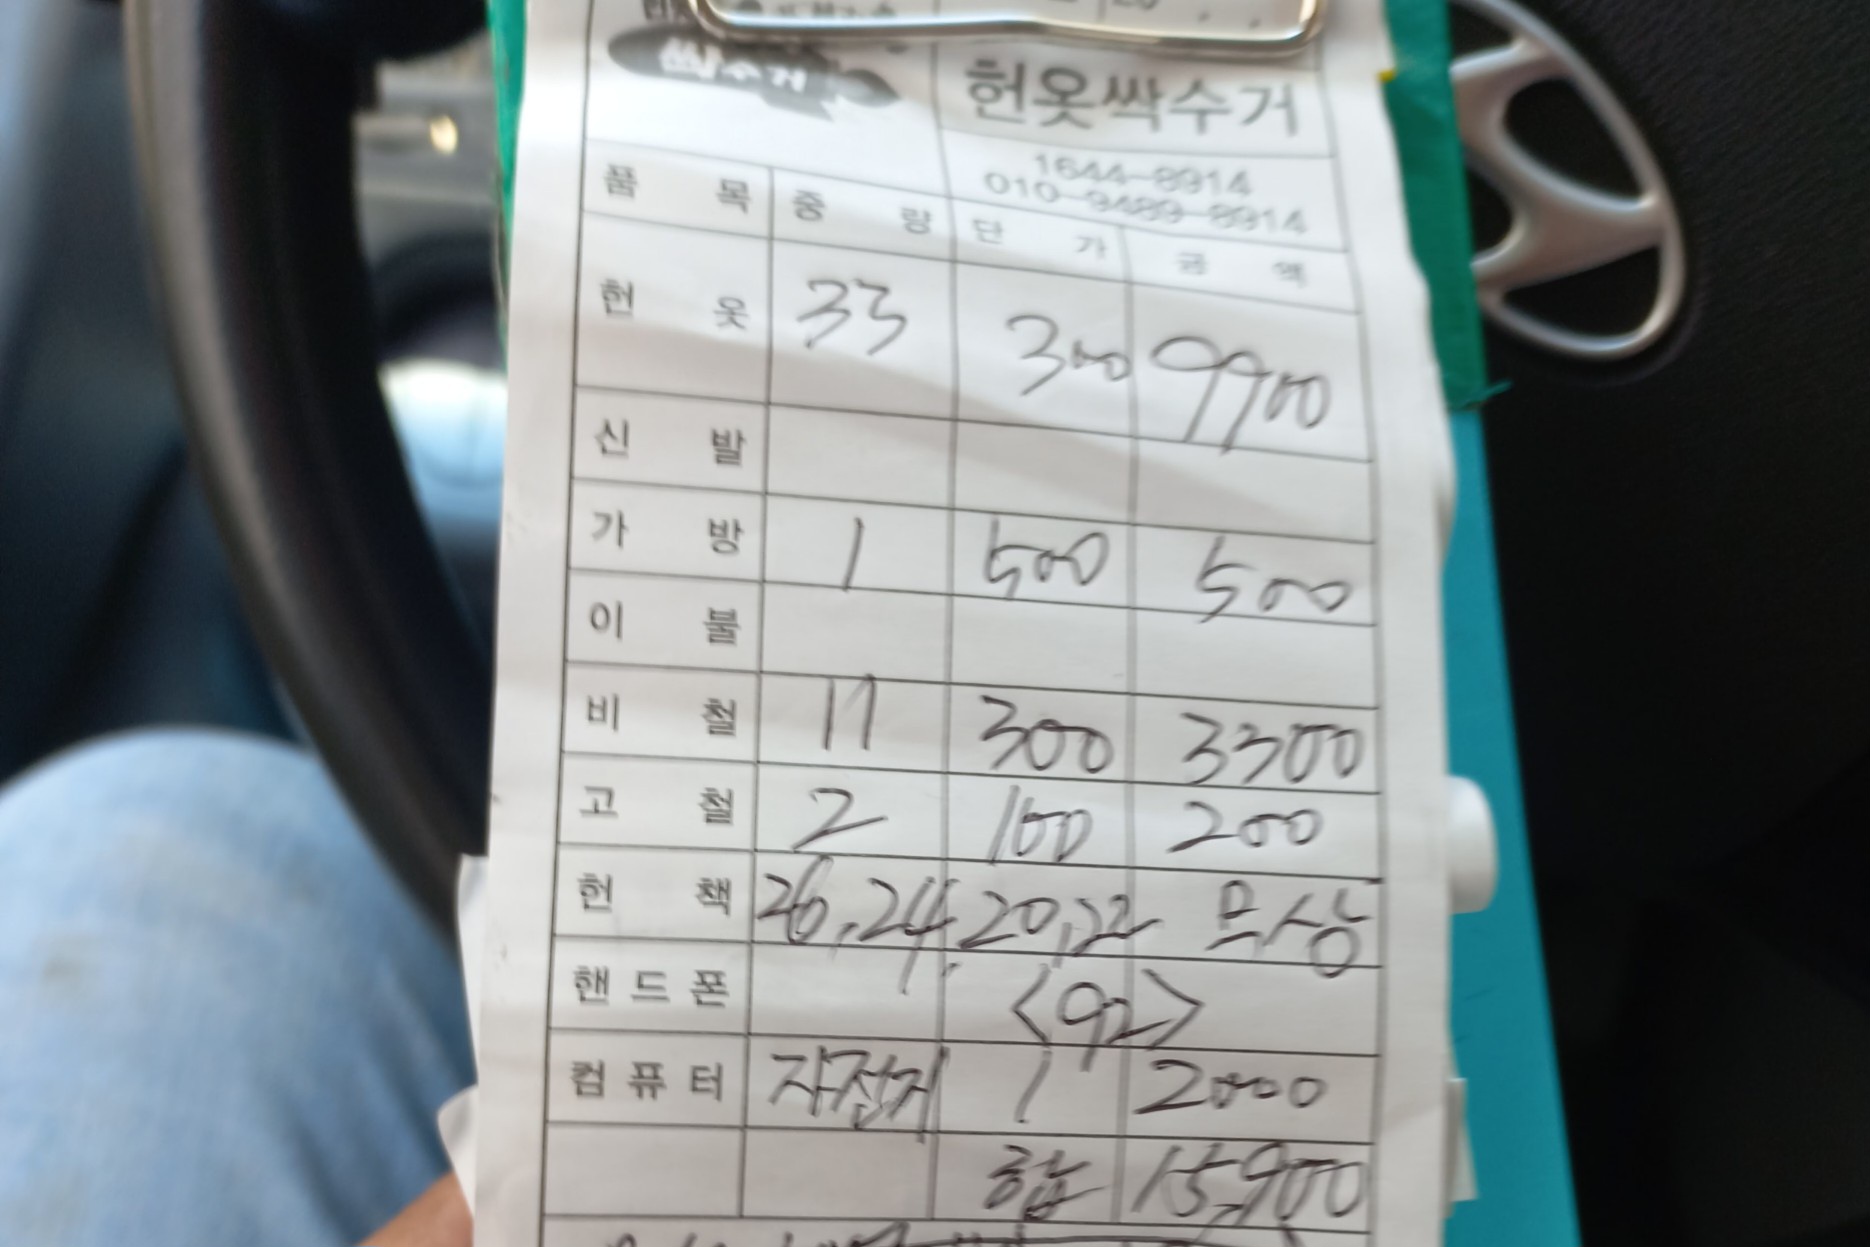 싹수거
헌옷싹수거
1644-8914
010-9489-8914
품목 중량 단가 금액
헌옷 33 300 9900
신발
가방 1 500 500
이불
비철 11 300 3300
고철 2 100 200
헌책 26,24, 20,22 무상
핸드폰 <92>
컴퓨터 자전거 1 2000
합 15,900